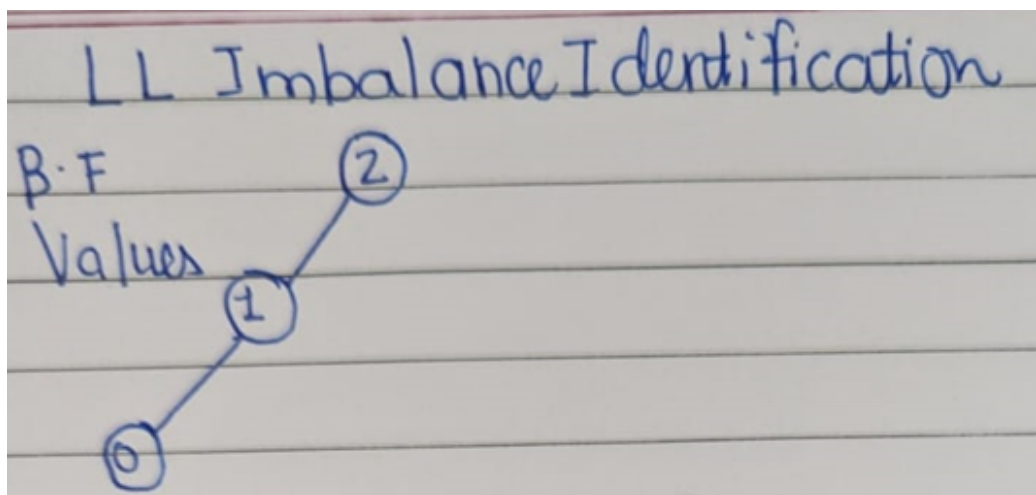 LL Imbalance Identification
B.F
2
Values
1
0